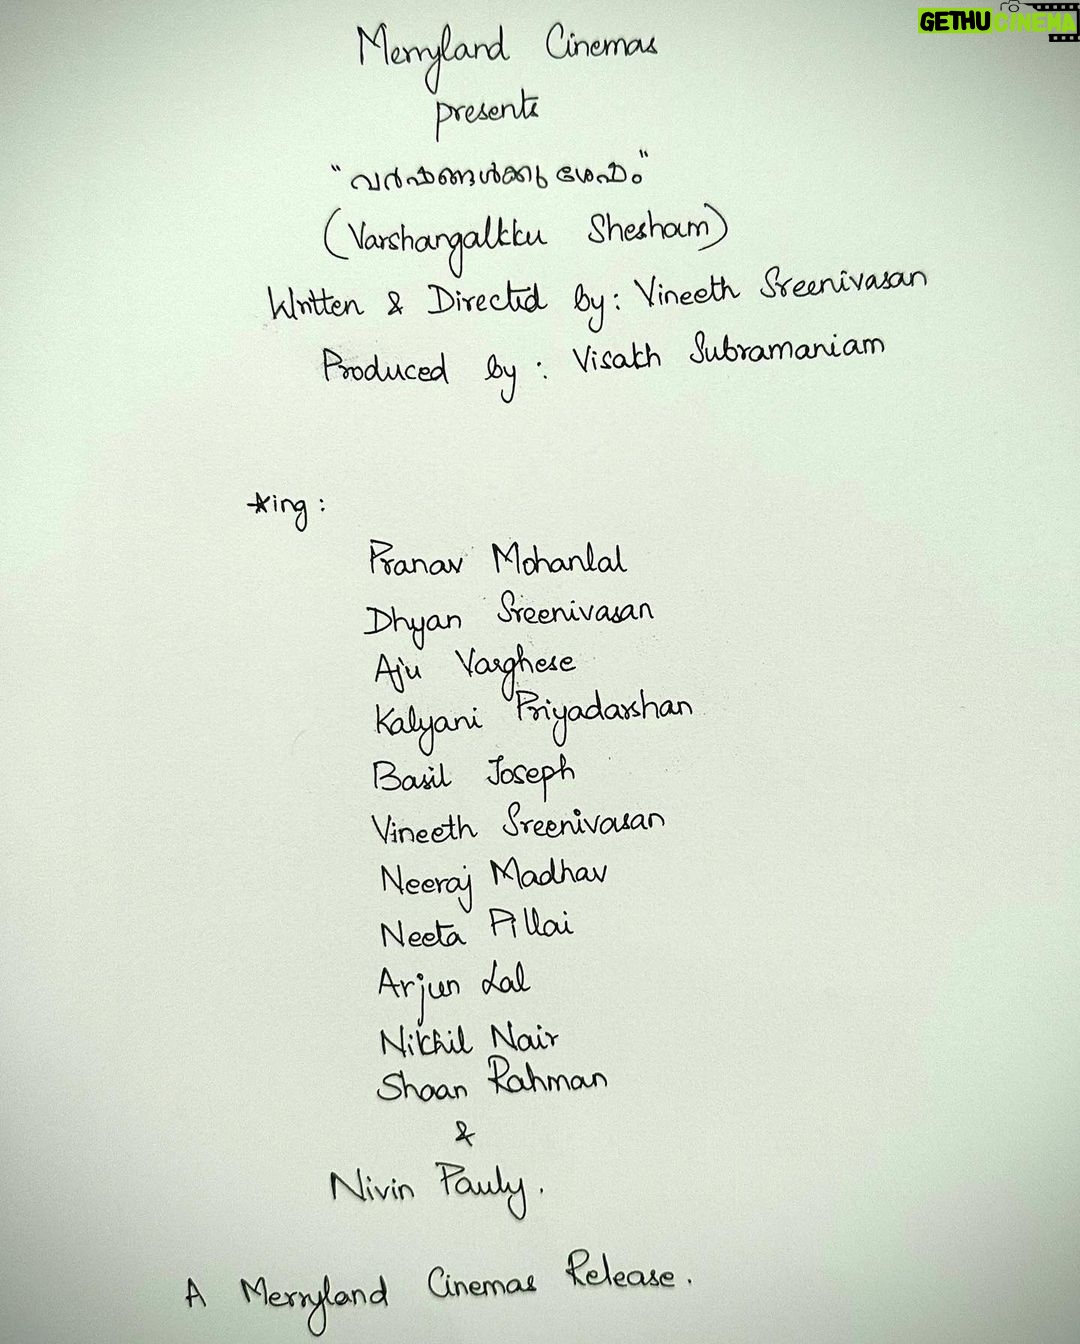 GETHU CINEMA
Merryland Cinemas
presents
"വർഷങ്ങൾക്കു ശേഷം"
(Varshangalkku Shesham)
Written & Directed by: Vineeth Sreenivasan
Produced by : Visakh Subramaniam
*ing :
Pranav Mohanlal
Dhyan Sreenivasan
Aju Varghese
Kalyani Priyadarshan
Basil Joseph
Vineeth Sreenivasan
Neeraj Madhav
Neeta Pillai
Arjun Lal
Nikhil Nair
Shaan Rahman
&
Nivin Pauly.
A Merryland Cinemas Release.